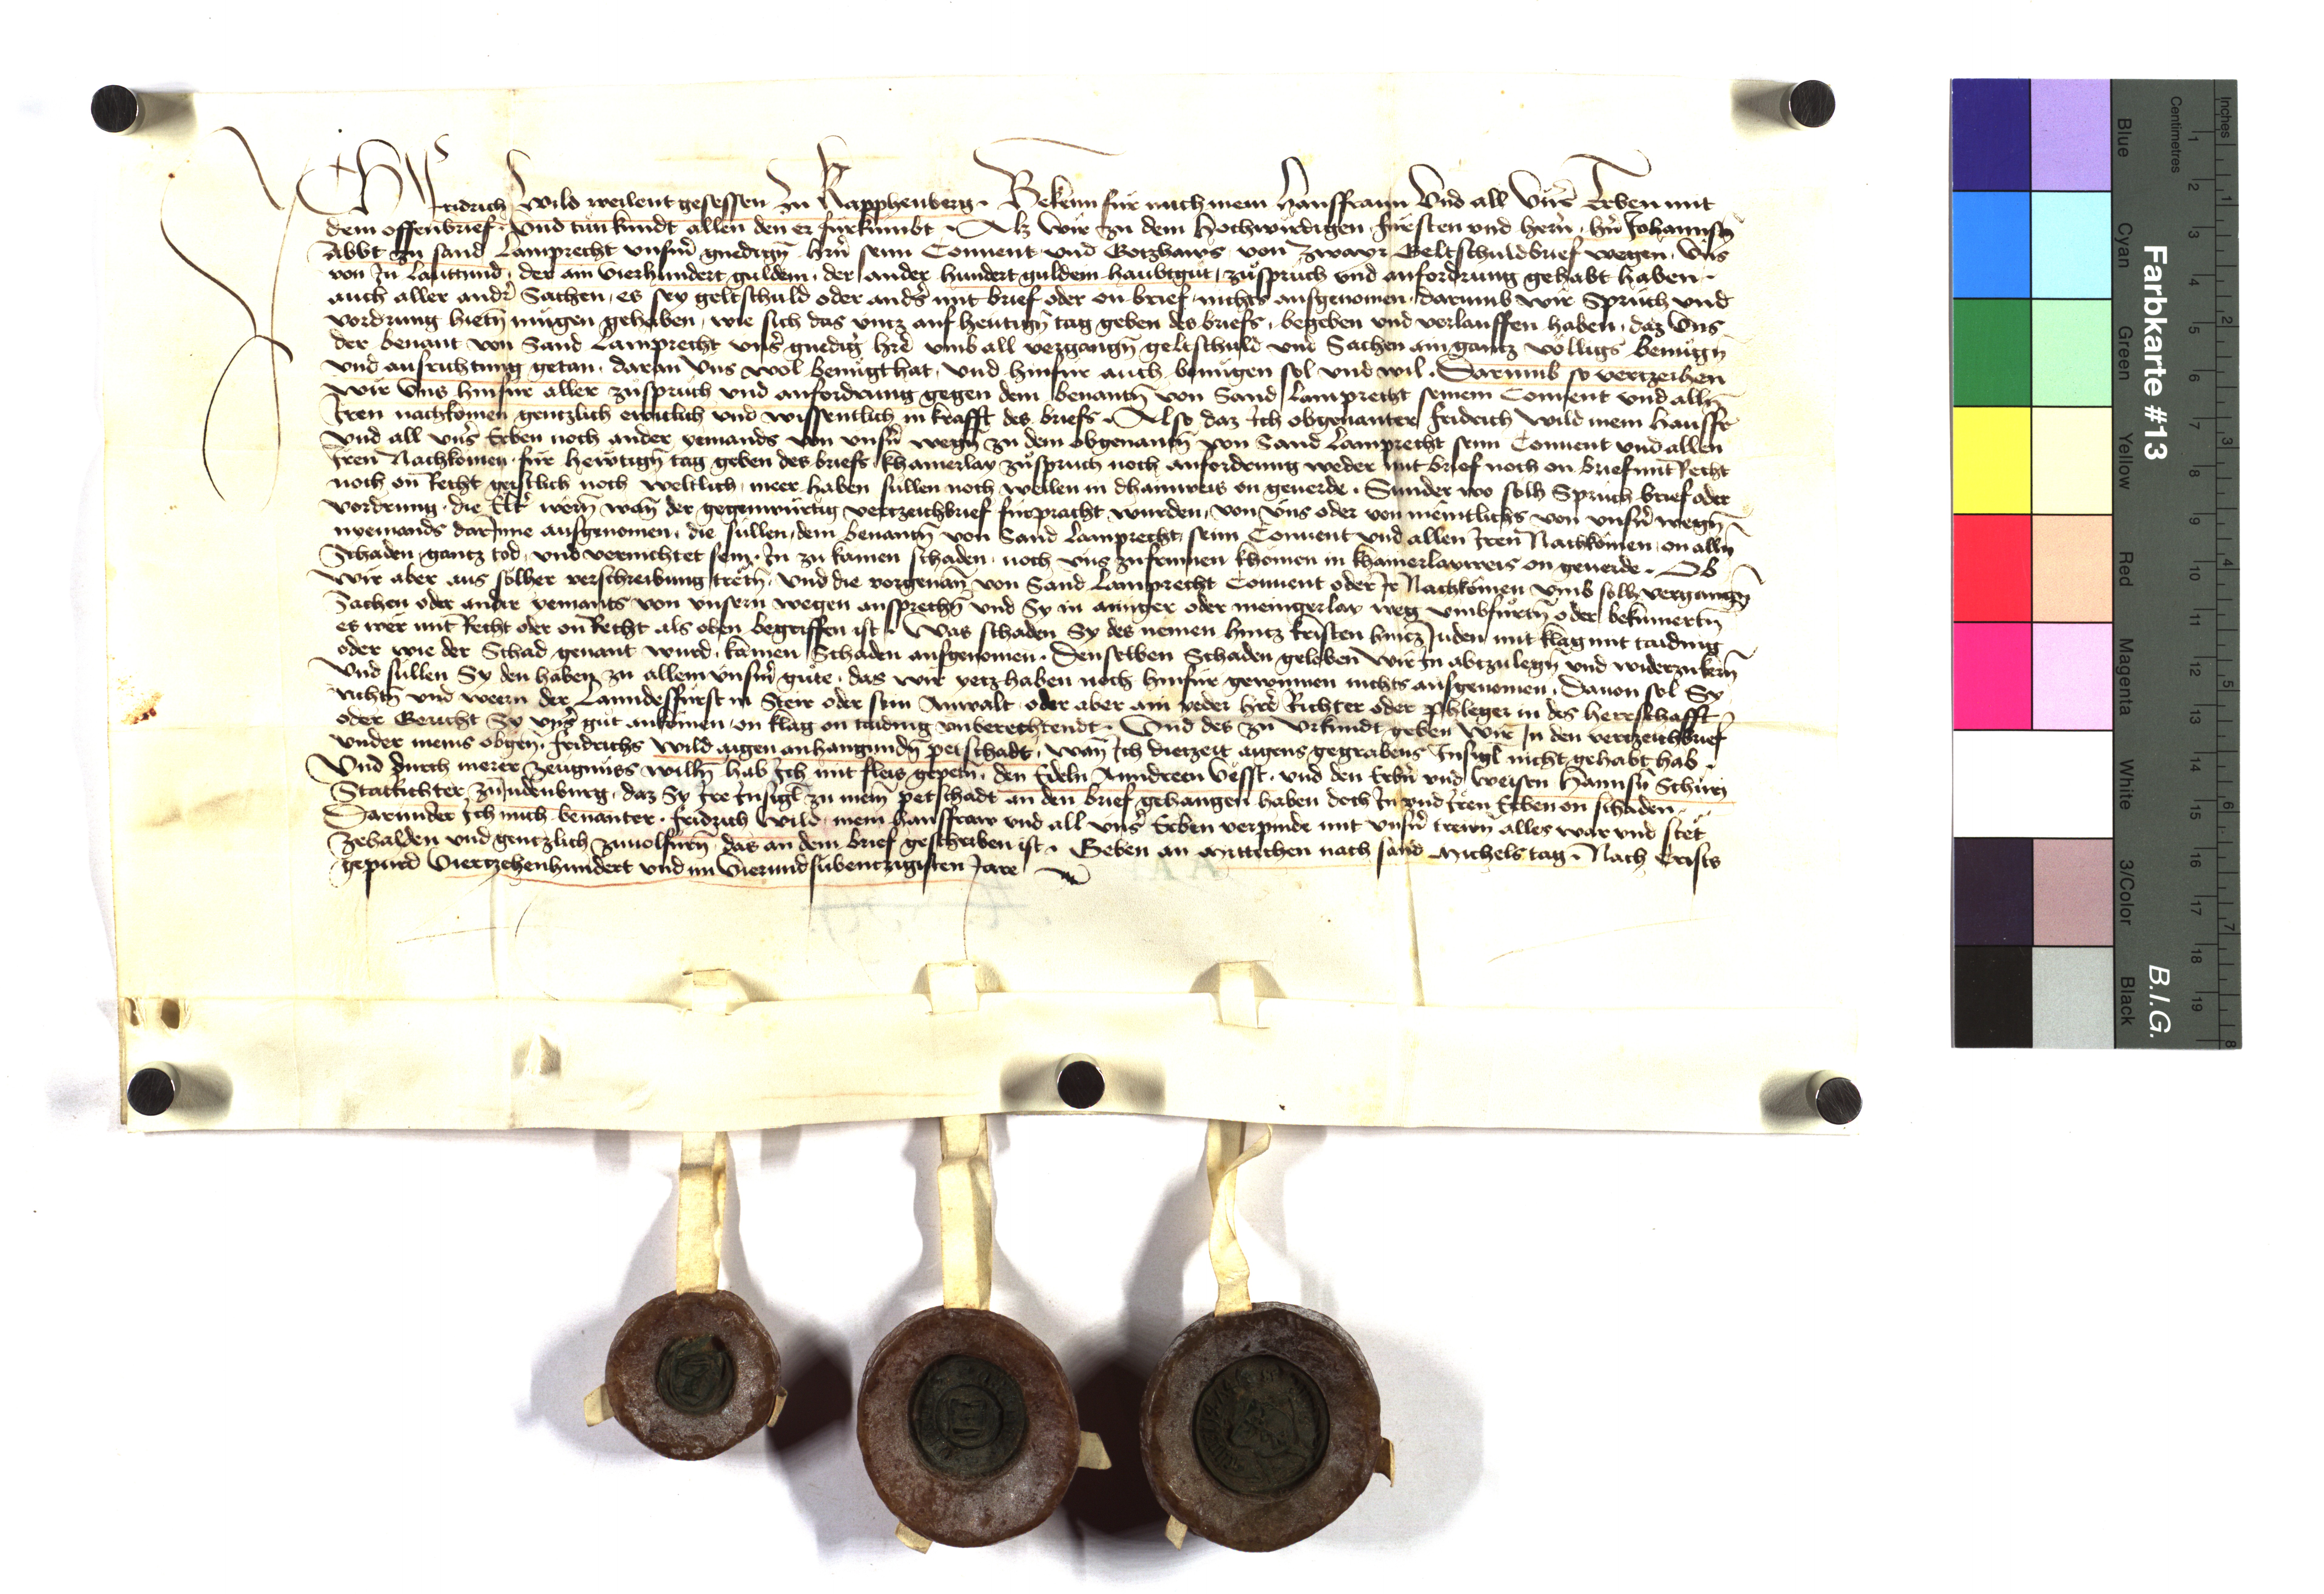 Ich Fridrich Wild weilent gesessen zu Kapphenberg · Bekenn für mich mein Hausffraun Und all Unsr̄ Erben mit
dem offenbrief · Und tun kundt allen den er fürkumbt · Alz wir zu dem Hochwirdigen fürsten und herrn̄ · hr̄n Johannsen
Abbt zu sand Lamprecht unsrm̄ gnedign̄ hrn̄ seim Conuent und Gotzhaws von zwayr Geltschuldbrief wegen, Uns
von In lauttund, der ain vierhundert guldein, der ander hundert guldein haubtgut, zuspruch und anfordrung gehabt haben ·
auch aller andr̄ Sachen, es sey geltschuld oder andrs̄ mit brief oder on brief, nichts ausgenomen, darumb wir Spruch und
vordrung hietn̄ mugen gehaben, wie sich das vntz auf heutign̄ tag geben des briefs, begeben und verlauffen haben, daz Uns
der benant von Sand Lamprecht unsr̄ gnedig hre umb all vergangn̄ geltschuld und Sachen ain gantz volligs benugn̄
und ausrichtung getan, daran Uns wol benugt hat, und hinfur auch benugen sol und wil · Darumb so vertzeihen
wir Uns hinfur aller zuspruch und anfordrung gegen dem benantn̄ von Sand Lamprecht seinem Conuent und alln̄
Iren nachkomen gentzlich ewiclich und wissentlich in krafft des briefs · Also daz Ich obgenanter Fridrich Wild mein Hausfr
und all unsr̄ Erben noch ander yemands von unsrn̄ wegn̄ zu dem obgenantn̄ von Sand Lamprecht seim Conuent und allen
Iren Nachkomen für hewtign̄ tag geben des briefs khainerlay zuspruch noch anfordrung weder mit brief noch on brief mit Recht
noch on Recht geistlich noch weltlich, meer haben sullen noch wellen in dhainweis on geuerde · Sunder wo solh Spruch brief oder
vordrung, die Eltr̄ wern̄ wan̄ der gegenwurtig vertzeichbrief furpracht wurden, von uns oder von meintlichs von unsrn̄ wegn̄
nyemands darInne ausgenomen, die sullen, dem benantn̄ von Sand Lamprecht, seim Conuent und allen Iren Nachkomen, on alln̄
Schaden, gantz tod, und vernichtet sein, In zu kainen schaden, noch uns zu frumen khomen in khainerlayweis on geuerde · Ob
wir aber aus solher verschreibung tretn̄, und die vorgenan̄ von Sand Lamprecht Conuent oder Ir Nachkomen umb solh vergangn̄
Sachen oder ander yemants von unsern wegen ansprechn̄ und Sy in ainiger oder meingerlay weg umbfurtn̄ oder bekumertn̄
es wer mit Recht oder on Recht als oben begriffen ist · Was schaden Sy des nemen hintz kristen hintz Juden mit klag mit taiding
oder wie der Schad genant wurd, kainen Schaden ausgenomen · Denselben Schaden geloben wir In abtzulegn̄ und widerzukern̄
und sullen Sy den haben zu allem unsrm̄ gute, das wir yetz haben noch hinfür gewinnen nichts ausgenomen · Dauon sol Sy
richtn̄ und wern̄ der Lanndesfürst in Steir oder sein Anwalt oder aber ain yeder hre Richter oder phleger in des herrschafft
oder Gericht Sy unsr̄ gut ankomen, on klag on taiding unberechtendt · Und des zu Urkundt geben wir In den vertzeichbrief
under meins obgen̄ · Fridrichs Wild aigen anhangundn̄ petschadt, wan̄ Ich dietzeit aigens gegrabens Insigl nicht gehabt hab ·
Und durch merer zeugnüss willn̄ hab Ich mit fleis gepetn̄, den Edeln Anndreen Vesst, und den Erbrn̄ und weisen Hannsn̄
Statrichter zu Judenburg, daz Sy Ire Insigl zu meim petschadt an den brief gehangen haben doch In und Iren Erben on schaden ·
Darunder Ich mich benanter · Fridrich Wild · mein hausfraw und all unsr̄ Erben verpinde mit unsrn̄ trewn̄ alles war und stet
zehalden und gentzlich zuuolfurn̄, das an dem brief geschriben ist · Geben an Mittichen nach sand Michels tag · Nach Crists
gepurd Viertzehenhundert und im Vierundsubentzigisten Jare
Farbkarte #13
B.I.G.
Inches
Centimetres
1 2 3 4 5 6 7 8 9 10 11 12 13 14 15 16 17 18 19
1 2 3 4 5 6 7 8
Blue
Cyan
Green
Yellow
Red
Magenta
White
3/Color
Black